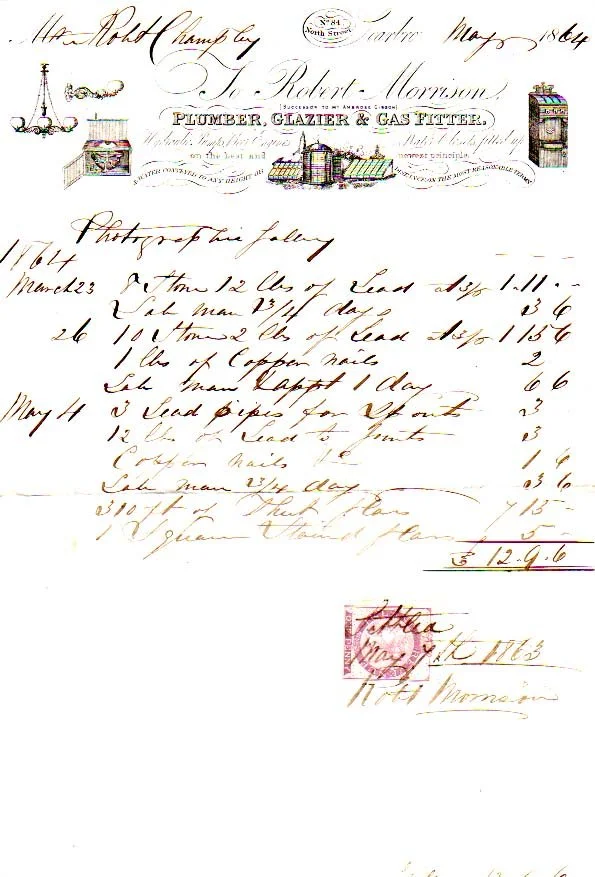 Mr Robt Champley
No 84
North Street
May 1864
To Robert Morrison,
(SUCCESSOR TO Mr AMBROSE GIBSON)
PLUMBER, GLAZIER & GAS FITTER.
Water Closets fitted up
on the best and newest principle.
WATER CONVEYED TO ANY HEIGHT OR DISTANCE ON THE MOST REASONABLE TERMS
Photographic Gallery
1864
March 23 8 Stone 12 lbs of Lead at 3/6 1 - 11 -
Lab man 3/4 day 3 6
26 10 Stone 2 lbs of Lead at 3/6 1 15 6
1 lbs of Copper nails 2
Lab man & appt 1 day 6 6
May 4 3 Lead pipes for Spouts 3
12 lbs of Lead to Joints 3
Copper nails 1 6
Lab man 3/4 day 3 6
310 ft of Glass 7 15 -
1 Square Stained Glass 5 -
£ 12 . 9 . 6
PENNY
Settled
May 7th 1863
Robt Morrison